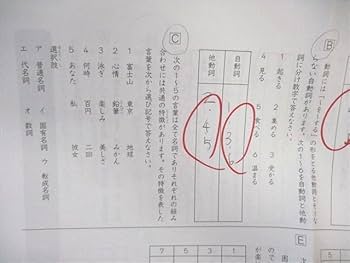 B
動詞には「―を―する」の形をとる他動詞とそうな
らない自動詞があります。次の1～6を自動詞と他動
詞に分け数字で答えなさい。
1 起きる 2 集める 3 受かる
4 見る 5 食べる 6 温まる
自動詞
他動詞
3.
2.4.5
C
次の1～5の言葉は全て名詞でありそれぞれの組み
合わせには共通の特徴があります。その特徴を表した
言葉を次から選び記号で答えなさい。
1 富士山 東京 地球
2 心情 鉛筆 みかん
3 泳ぎ 楽しみ 美しさ
4 何時 百円 二回
5 あなた 私 彼女
選択肢
ア 普通名詞 イ 固有名詞 ウ 転成名詞
エ 代名詞 オ 数詞
E
7 5 3 1